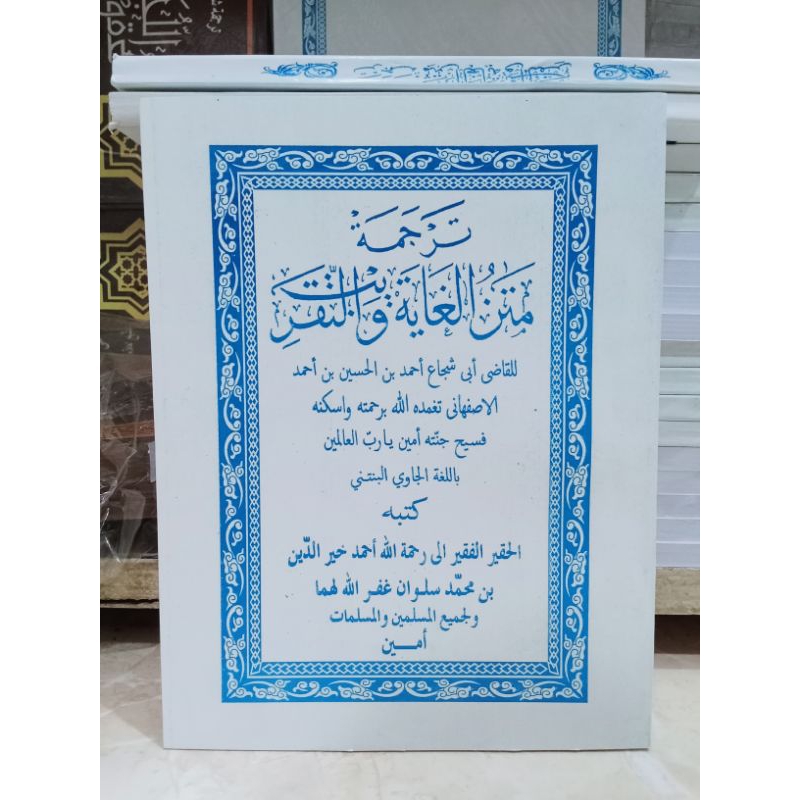 تَرْجَمَة
مَتْنُ الْغَايَةِ وَالتَّقْرِيْبِ
للقاضى أبى شجاع أحمد بن الحسين بن أحمد
الاصفهانى تغمده الله برحمته واسكنه
فسيح جنّته أمين يا ربّ العالمين
باللغة الجاوي البنتني
كتبه
الحقير الفقير الى رحمة الله أحمد خير الدّين
بن محمّد سلوان غفر الله لهما
ولجميع المسلمين والمسلمات
أمين